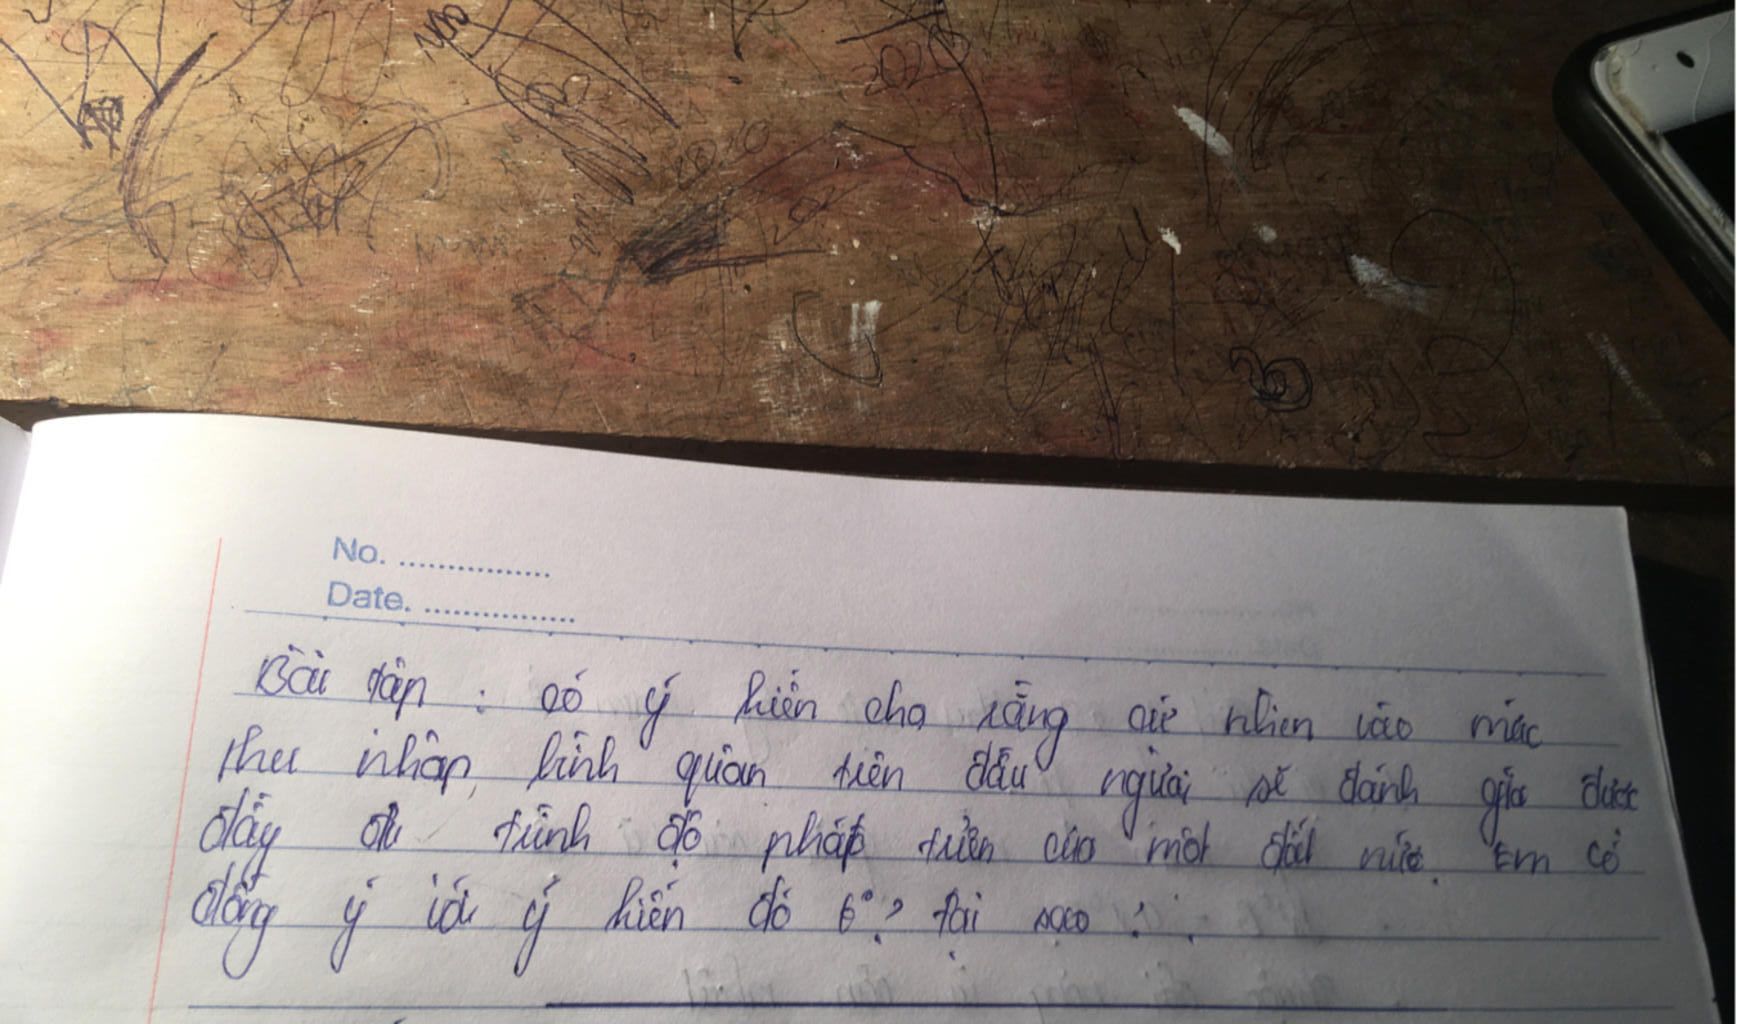 2021
2020
No. ................
Date. ................
Bài tập : có ý kiến cho rằng cứ nhìn vào mức
thu nhập bình quân trên đầu người sẽ đánh giá được
đầy đủ trình độ phát triển của một đất nước. Em có
đồng ý với ý kiến đó 6°? Tại sao ?.